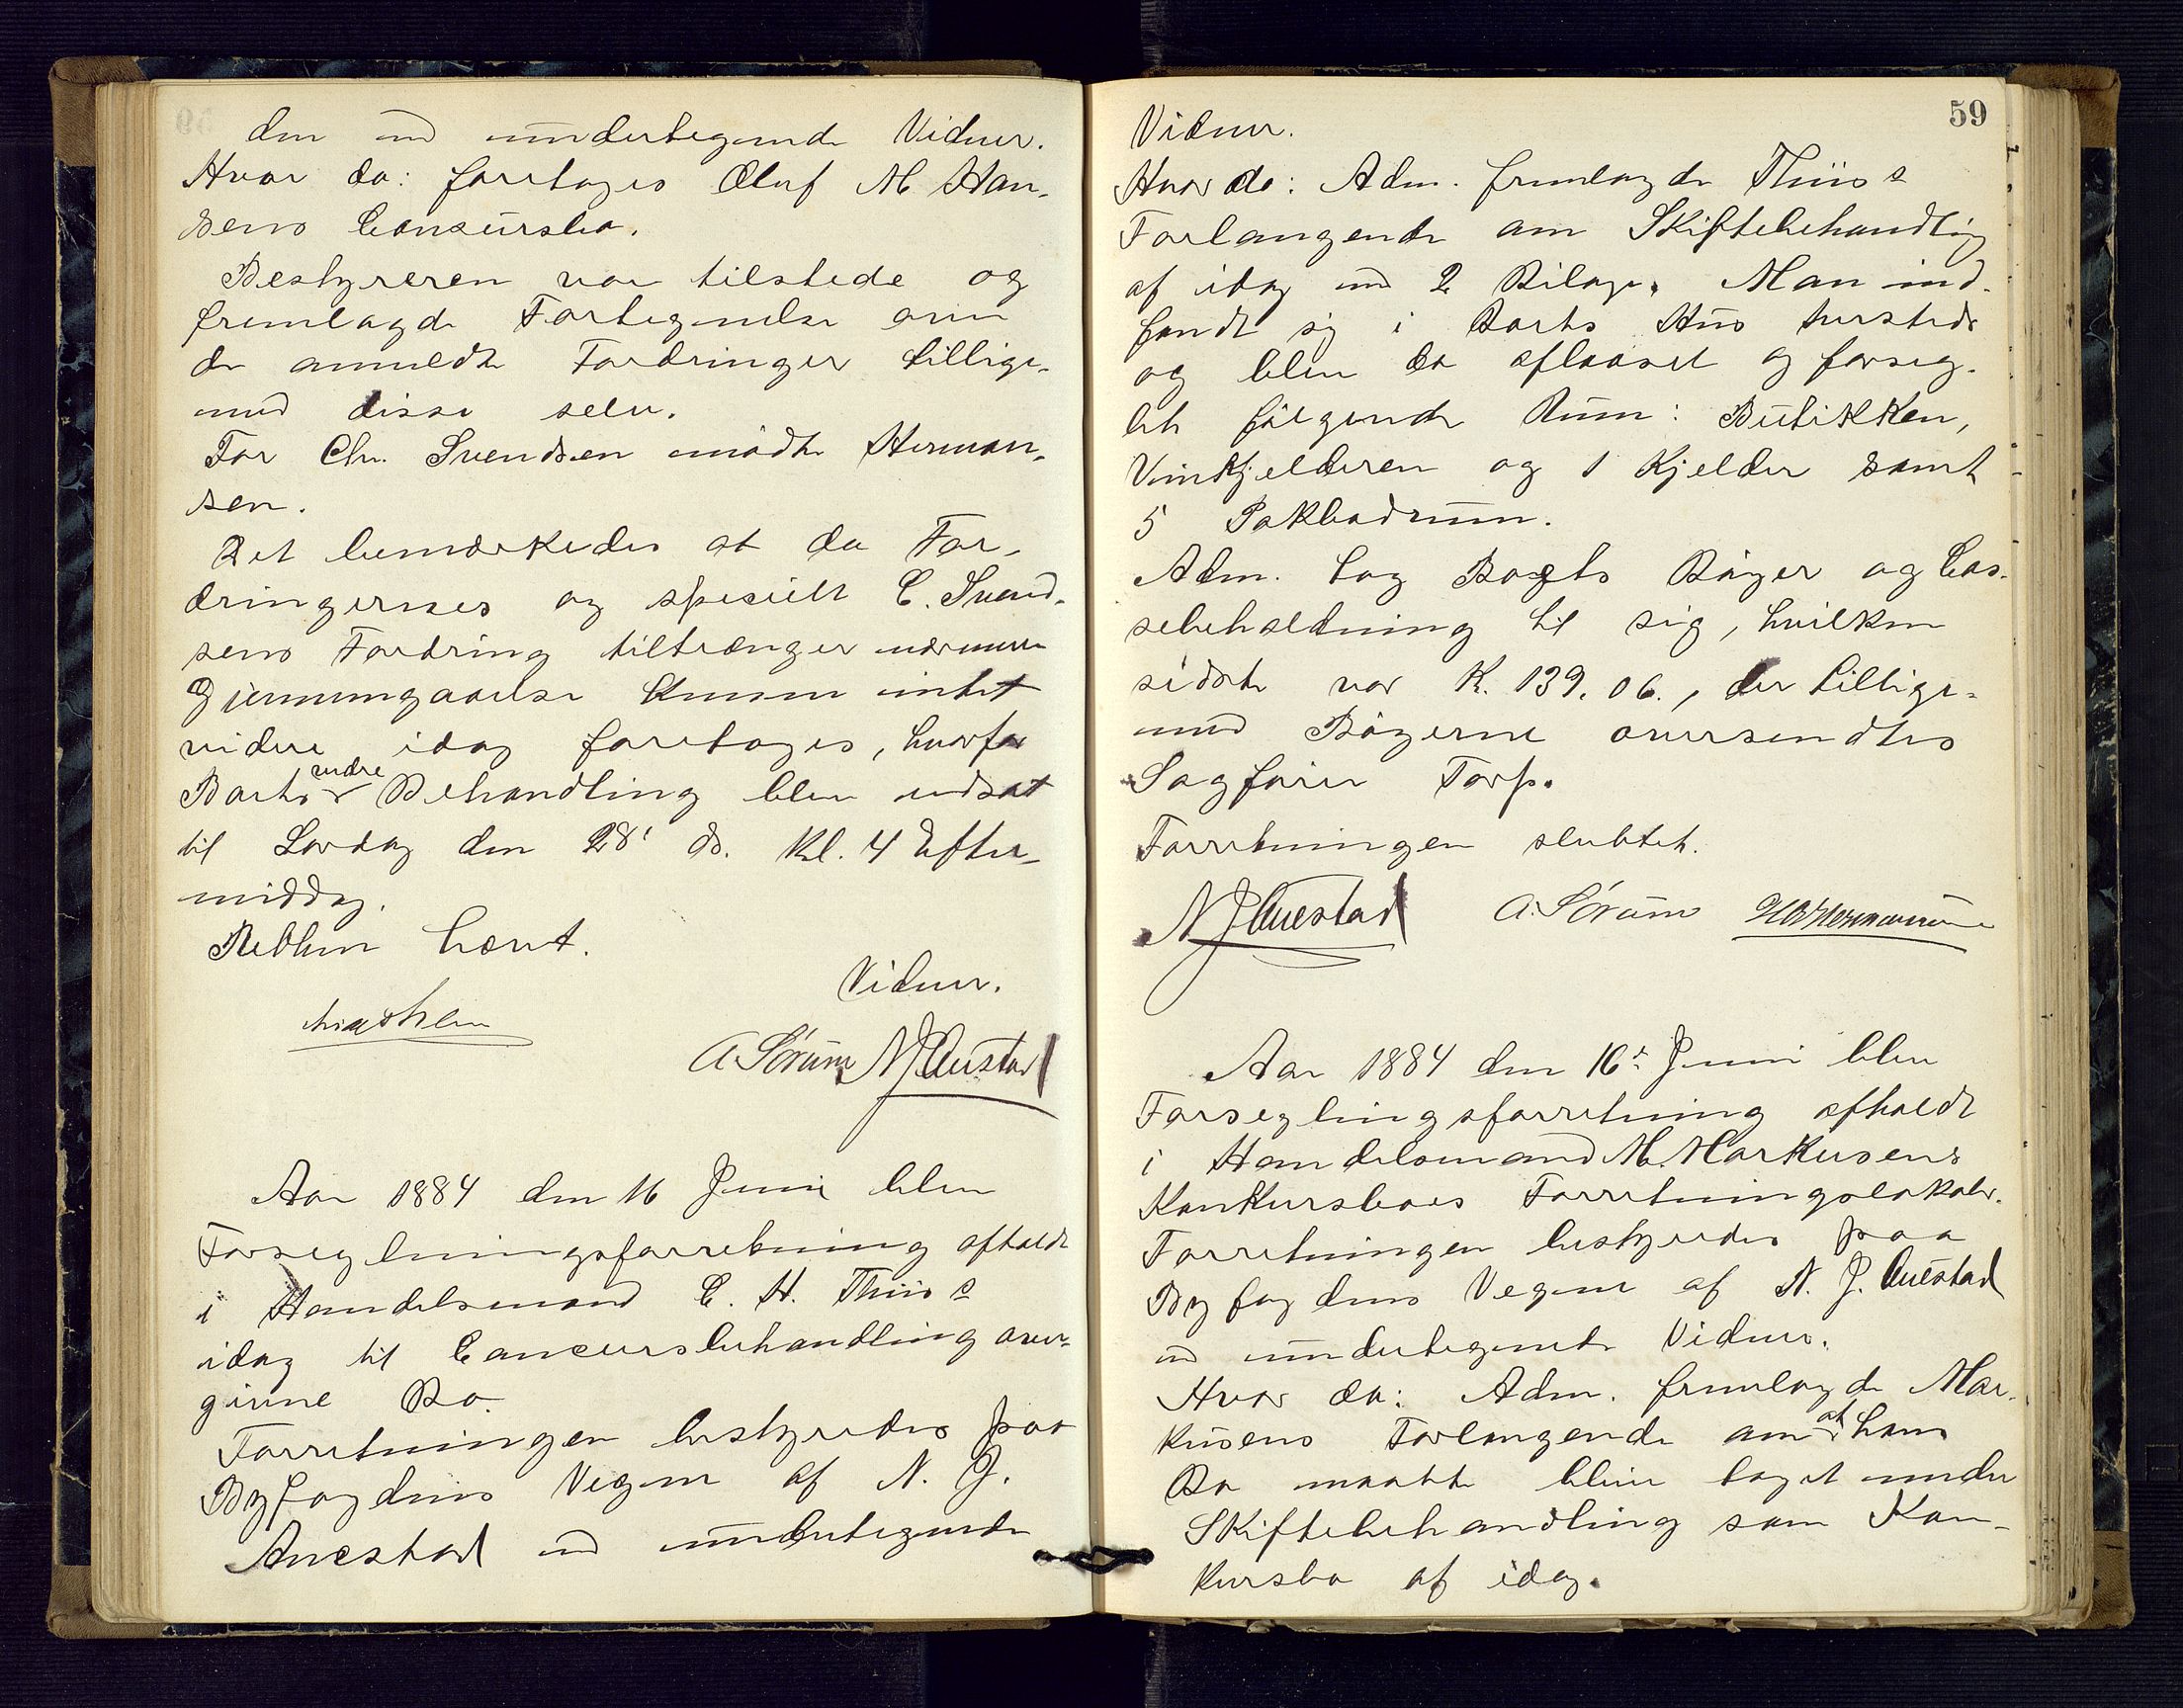 den med undertegnede Vidner.
Hvor da: foretoges Oluf M. Han-
sens Concursbo.
Bestyreren var tilstede og
fremlagde Fortegnelse over
de anmeldte Fordringer tillige-
med disse selv.
For Chr. Svendsen mødte Herman-
sen.
Det bemærkedes at da For-
dringernes og specielt C. Svend-
sens Fordring tiltrænger nærmere
Gjennemgaaelse kunne intet
videre idag foretages, hvorfor
Boets videre Behandling blev udsat
til Lørdag den 28' ds. Kl. 4 Efter-
middag.
Retten hævet.
Vidner.
A. Sørum N J Auestad
Aar 1884 den 16 Juni blev
Forseglingsforretning afholdt
i Handelsmand C. H. Thiis's
idag til Concursbehandling over-
givne Bo.
Forretningen bestyredes paa
Byfogdens Vegne af N. J.
Auestad med undertegnede
59
Vidner.
Hvor da: Adm. fremlagde Thiis's
Forlangende om Skiftebehandling
af idag med 2 Bilage. Man ind-
fandt sig i Boets Hus hersteds
og blev da aflaaset og forseg-
let følgende Rum: Butikken,
Vinkjelderen og 1 Kjelder samt
5 Pakbodrum.
Adm. tog Boets Bøger og Cas-
sebeholdning til sig, hvilken
sidste var K. 139.06., der tillige-
med Bøgerne oversendtes
Sagfører Torp.
Forretningen sluttet.
N J Auestad A. Sørum
Aar 1884 den 16' Juni blev
Forseglingsforretning afholdt
i Handelsmand M. Markusens
Konkursboes Forretningslokale.
Forretningen bestyredes paa
Byfogdens Vegne af N. J. Auestad
med undertegnede Vidner.
Hvor da: Adm. fremlagde Mar-
kusens Forlangende om at hans
Bo maatte blive taget under
Skiftebehandling som Kon-
kursbo af idag.